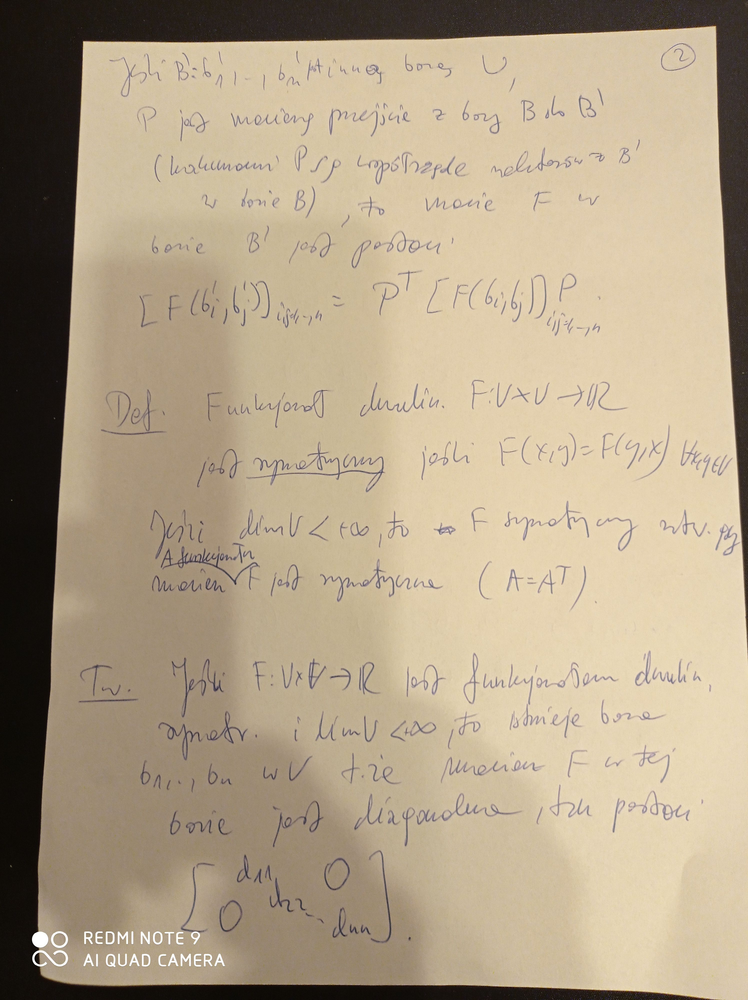 ②
Jeśli B'=b'₁,..., b'ₙ jest inną bazą V,
P jest macierzą przejścia z bazy B do B'
(kolumnami P są współrzędne wektorów z B'
w bazie B), to macierz F w
bazie B' jest postaci
[F(b'ᵢ,b'ⱼ)]ᵢ,ⱼ₌₁,...,ₙ = Pᵀ [F(bᵢ,bⱼ)]ᵢ,ⱼ₌₁,...,ₙ P.
Def. Funkcjonał dwulin. F:V×V→ℝ
jest symetryczny jeśli F(x,y)=F(y,x) ∀x,y∈V
Jeśli dimV<+∞, to F symetryczny wtw. gdy
A funkcjonału
macierz F jest symetryczna (A=Aᵀ).
Tw. Jeśli F:V×V→ℝ jest funkcjonałem dwulin.
symetr. i dimV<+∞, to istnieje baza
b₁,..., bₙ w V t.że macierz F w tej
bazie jest diagonalna, tzn postaci
[d₁₁ 0
d₂₂...
0 dₙₙ].
REDMI NOTE 9
AI QUAD CAMERA